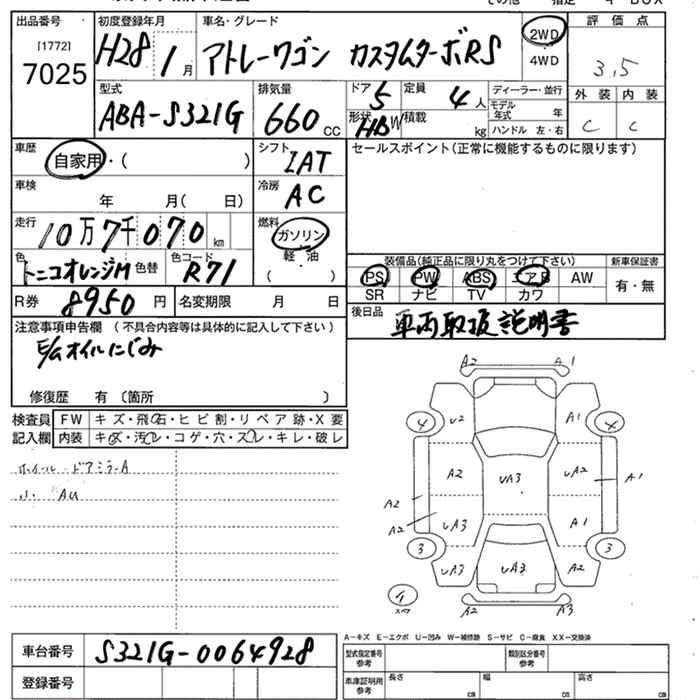 その他 指定 4 BOX
出品番号 初度登録年月 車名・グレード 評価点
[1772]
7025
H28 1月 アトレーワゴン カスタムターボRS 2WD
4WD
3.5
型式 排気量 ドア 定員 ディーラー・並行 外装 内装
ABA-S321G 660 CC 5 4人
モデル年式 年
形状 HBW 積載 kg ハンドル 左・右 C C
車歴 シフト セールスポイント(正常に機能するものに限ります)
自家用・( ) IAT
車検 冷房
年 月( 日) AC
走行 燃料
10万7千070 km ガソリン
色 色替 色コード 軽・油
トニコオレンジM R71 ( )
装備品(純正品に限り丸をつけて下さい) 新車保証書
PS PW ABS エアB AW 有・無
SR ナビ TV カワ
R券 8950円 名変期限 月 日
後日品 車両取扱説明書
注意事項申告欄 (不具合内容等は具体的に記入して下さい)
E/Gオイルにじみ
修復歴 有 〔箇所 〕
検査員 FW キズ・飛石・ヒビ割・リペア跡・X要
記入欄 内装 キズ・汚レ・コゲ・穴・スレ・キレ・破レ
ホイール・ドアミラーA
小・AU
A2 A1
4 U2 A1 4
A2 UA3 UA2 A1
A2
A2 UA3 A1
3 3
UA3 UA3 A2
イ
スペア
A2 A3
A-キズ E-エクボ U-凹み W-補修跡 S-サビ C-腐食 XX-交換済
車台番号 S321G-0064928
型式指定番号 参考 類別区分番号 参考
登録番号
車庫証明用 参考 長さ cm 幅 cm 高さ cm